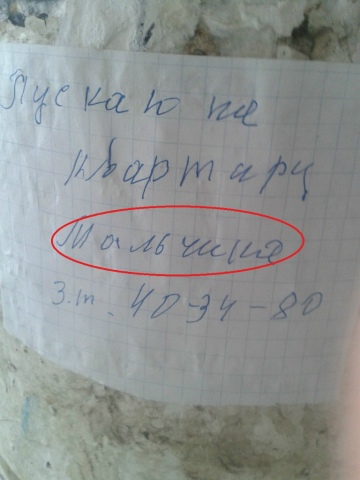 Пускаю на
квартиру
Мальчика
З.т. 40-34-80